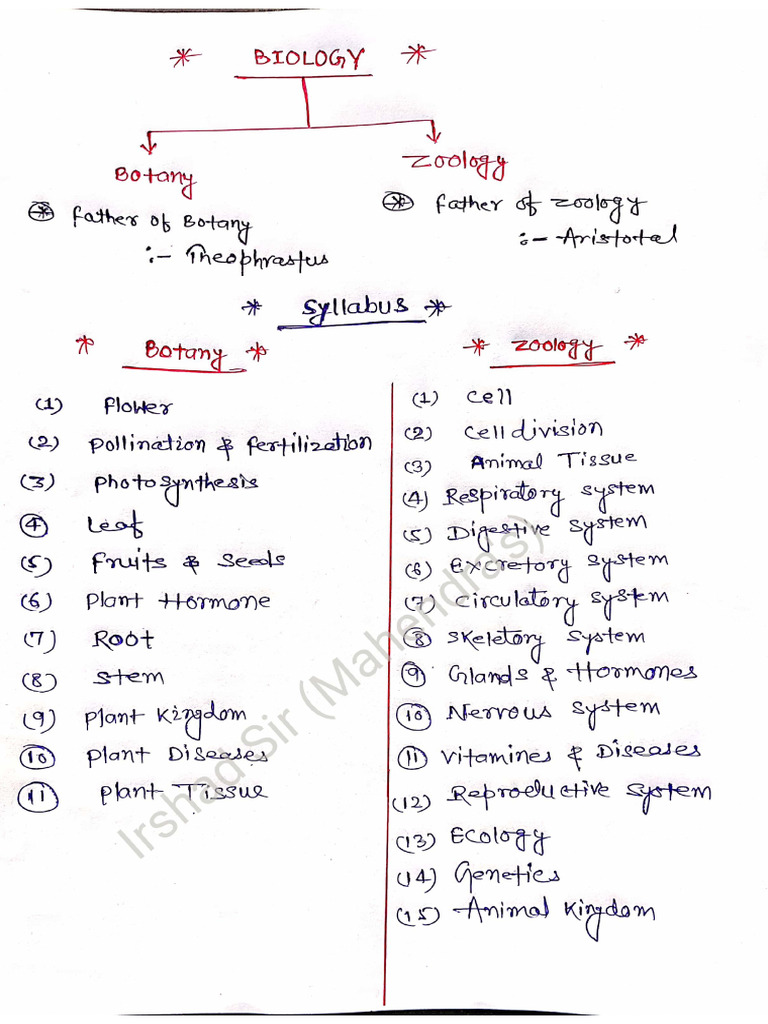 * BIOLOGY *
Botany
Zoology
* Father of Botany
:- Theophrastus
* Father of Zoology
:- Aristotal
* Syllabus *
* Botany *
(1) Flower
(2) Pollination & fertilization
(3) Photosynthesis
(4) Leaf
(5) Fruits & Seeds
(6) Plant Hormone
(7) Root
(8) Stem
(9) Plant Kingdom
(10) Plant Diseases
(11) Plant Tissue
* Zoology *
(1) Cell
(2) Cell division
(3) Animal Tissue
(4) Respiratory system
(5) Digestive system
(6) Excretory system
(7) Circulatory system
(8) Skeletory system
(9) Glands & Hormones
(10) Nervous system
(11) Vitamines & Diseases
(12) Reproductive system
(13) Ecology
(14) Genetics
(15) Animal Kingdom
Irshad Sir (Mahendra's)